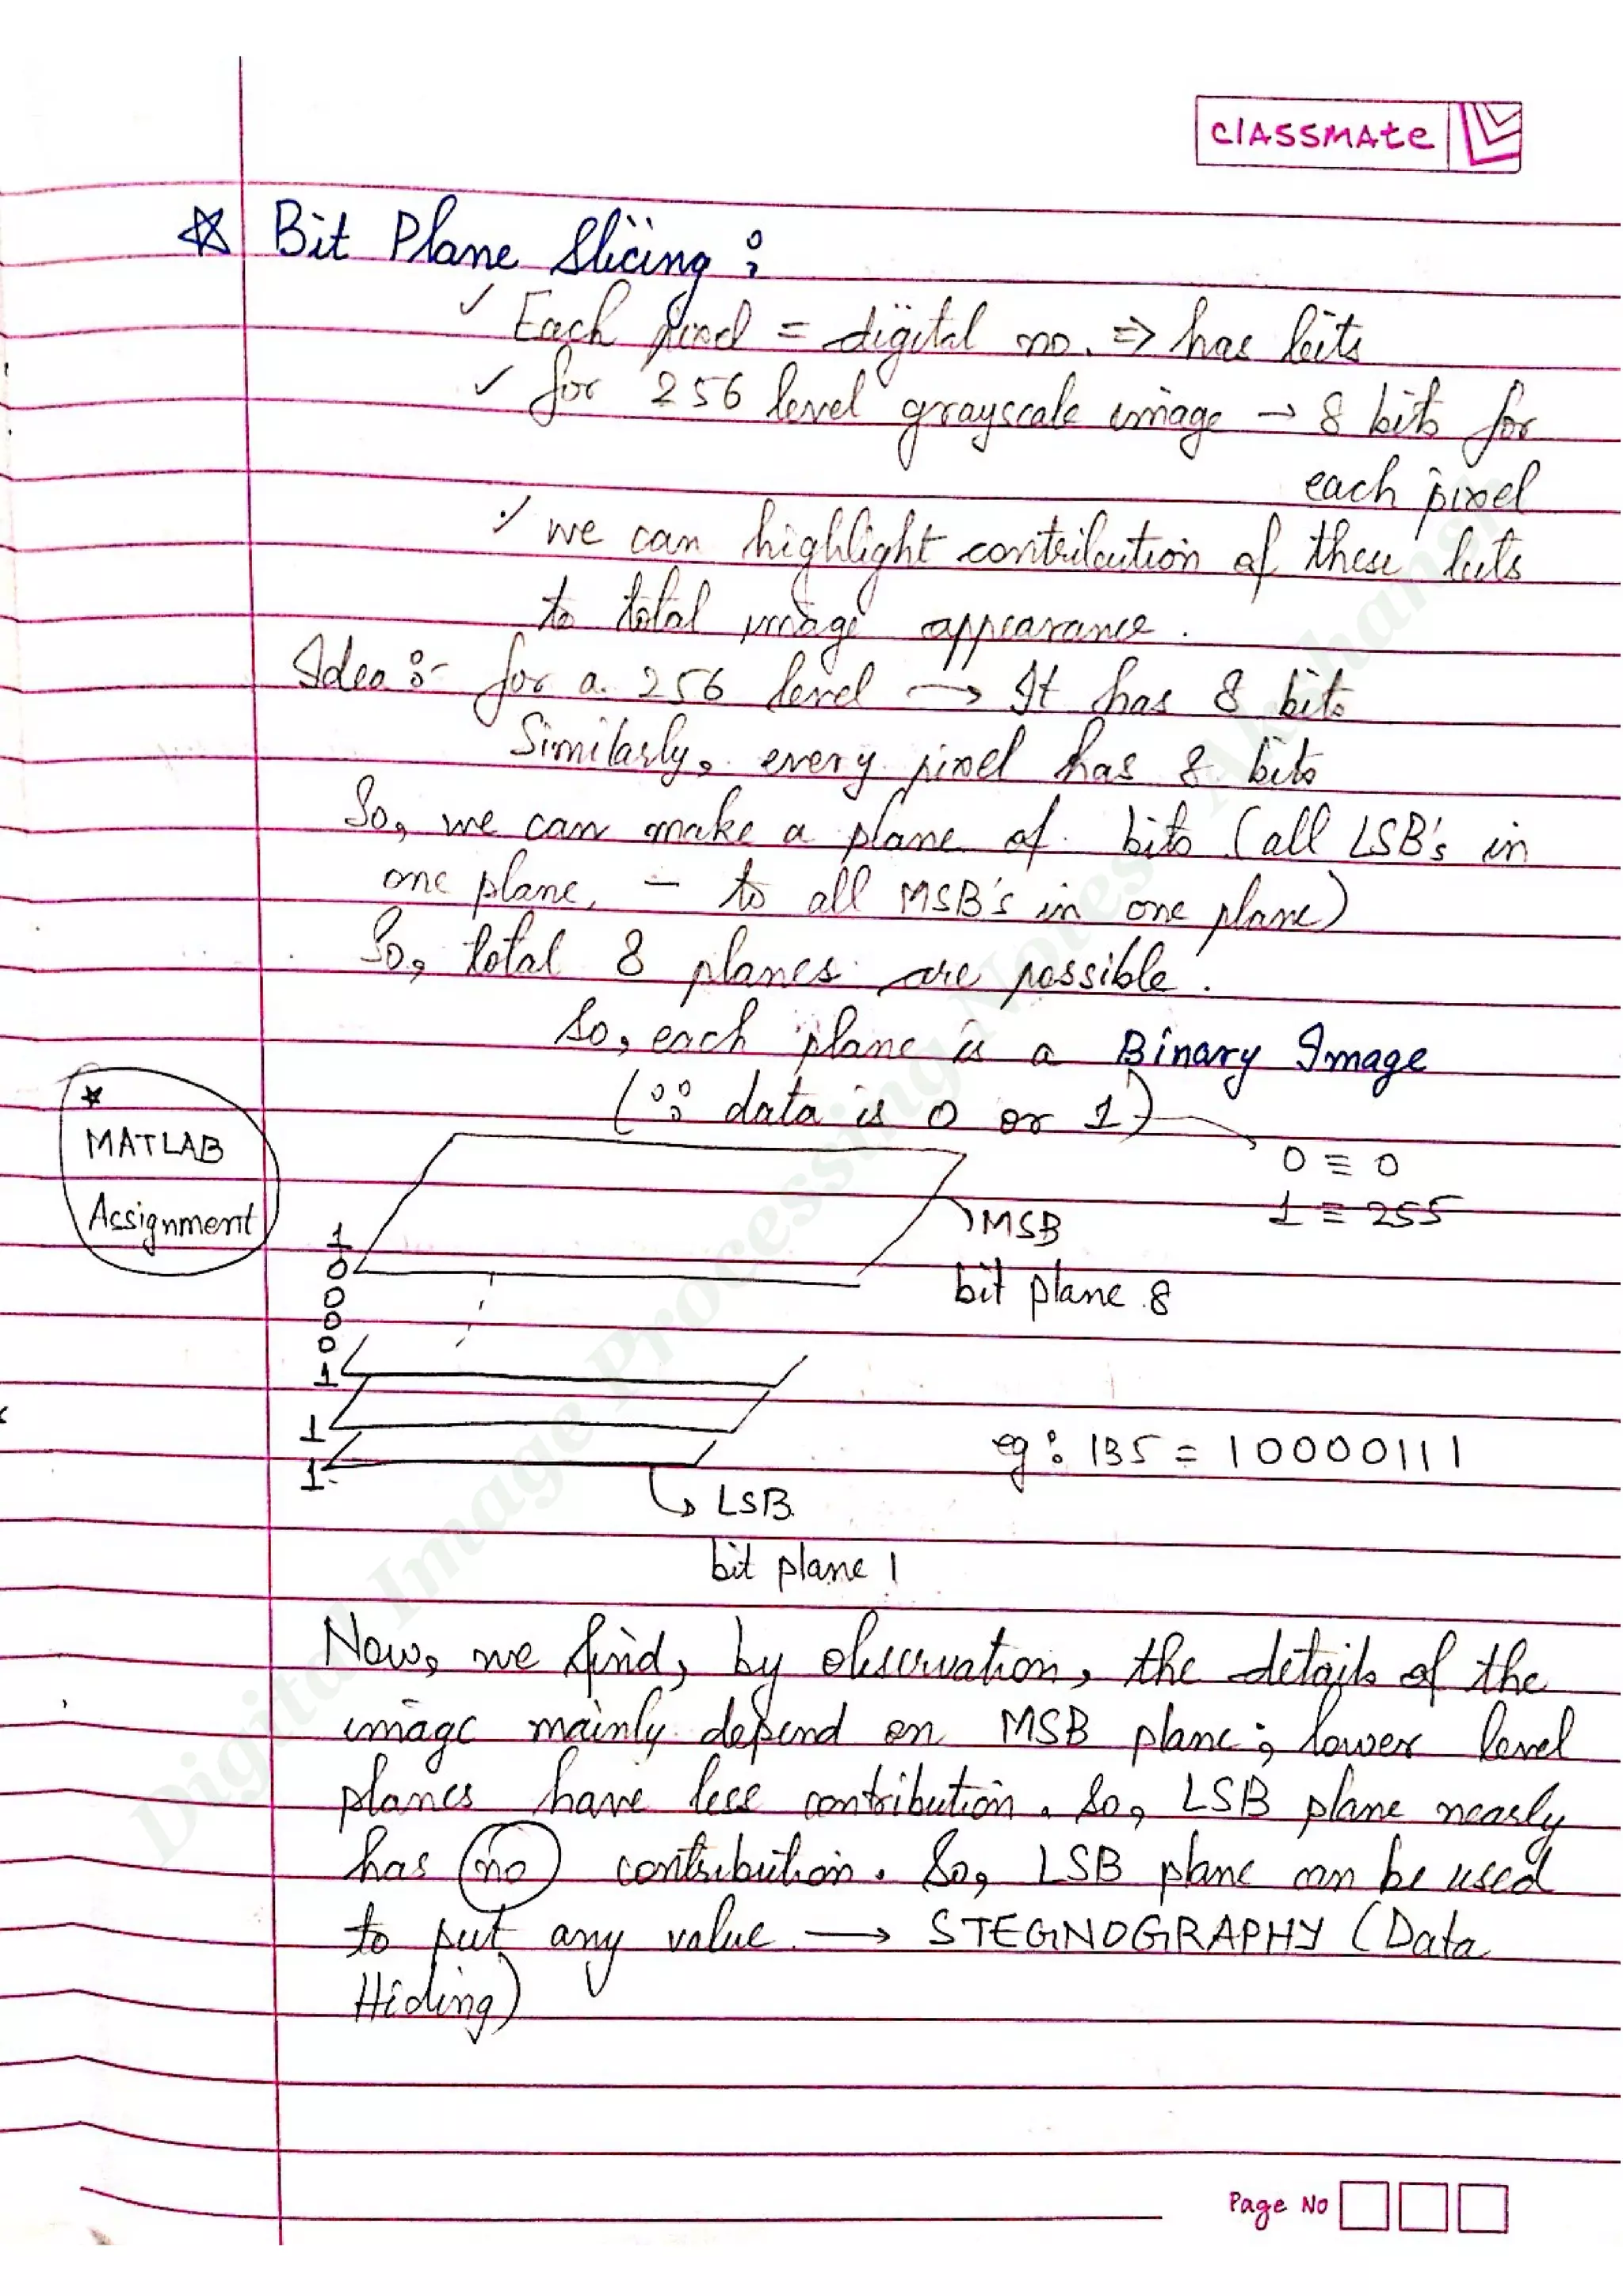 classmate
☆ Bit Plane Slicing :
✓ Each pixel = digital no. ⇒ has bits
✓ for 256 level grayscale image → 8 bits for
each pixel
✓ we can highlight contribution of these bits
to total image appearance.
Idea :- for a 256 level → It has 8 bits
Similarly, every pixel has 8 bits
So, we can make a plane of bits (all LSB's in
one plane, - to all MSB's in one plane)
So, total 8 planes are possible.
So, each plane is a Binary Image
(∵ data is 0 or 1)
0 ≡ 0
1 ≡ 255
★
MATLAB
Assignment
MSB
bit plane 8
1
0
0
0
0
1
1
1
eg: 135 = 10000111
LSB
bit plane 1
Now, we find, by observation, the details of the
image mainly depend on MSB plane; lower level
planes have less contribution. So, LSB plane nearly
has no contribution. So, LSB plane can be used
to put any value → STEGNOGRAPHY (Data
Hiding)
Page No
Digital Image Processing Notes - Akshansh